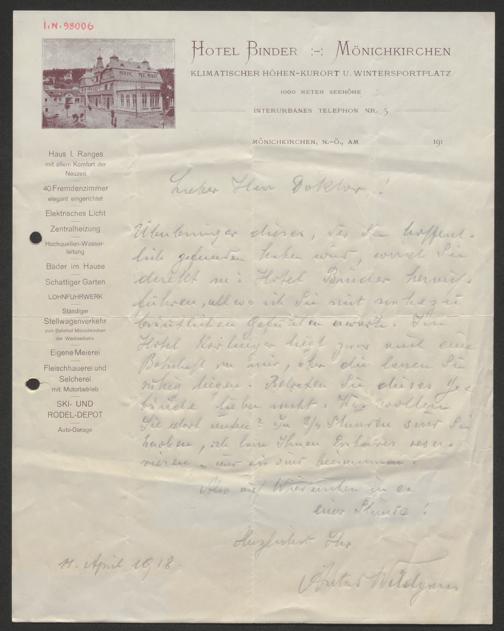 I.N. 98006
HOTEL BINDER :-: MÖNICHKIRCHEN
KLIMATISCHER HÖHEN-KURORT U. WINTERSPORTPLATZ
1000 METER SEEHÖHE
INTERURBANES TELEPHON NR. 5
MÖNICHKIRCHEN, N.-Ö., AM 191
Haus I. Ranges
mit allem Komfort der
Neuzeit
40 Fremdenzimmer
elegant eingerichtet
Elektrisches Licht
Zentralheizung
Hochquellen-Wasser-
leitung
Bäder im Hause
Schattiger Garten
LOHNFUHRWERK
Ständiger
Stellwagenverkehr
zum Bahnhof Mönichkirchen
der Wechselbahn
Eigene Meierei
Fleischhauerei und
Selcherei
mit Motorbetrieb
SKI- UND
RODEL-DEPOT
Auto-Garage
Lieber Herr Doktor!
Überbringer dieses, der Sie hoffent-
lich gefunden haben wird, wird Sie
direkt ins Hotel Binder
führen, allwo ich Sie mit
Gefühlen erwarte. Im
Hotel liegt zwar auch eine
Botschaft von mir, aber die lassen Sie
ruhig liegen. Betreten Sie dieses Ge-
bäude lieber nicht. Was wollen
Sie dort unten? In 3/4 Stunden sind Sie
heroben, ich kann Ihnen
Also auf Wiedersehen in
einer Stunde!
Herzlichst Ihr
11. April 1918
Anton Wildgans